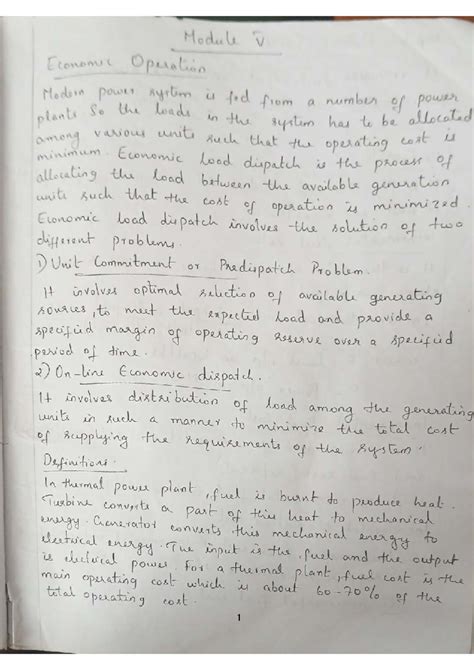 Module V
Economic Operation
Modern power system is fed from a number of power
plants So the loads in the system has to be allocated
among various units such that the operating cost is
minimum. Economic load dispatch is the process of
allocating the load between the available generation
units such that the cost of operation is minimized.
Economic load dispatch involves the solution of two
different problems.
1) Unit Commitment or Predispatch Problem.
It involves optimal selection of available generating
sources, to meet the expected load and provide a
specified margin of operating reserve over a specified
period of time.
2) On-line Economic dispatch.
It involves distribution of load among the generating
units in such a manner to minimize the total cost
of supplying the requirements of the system.
Definitions.
In thermal power plant, fuel is burnt to produce heat.
Turbine converts a part of this heat to mechanical
energy. Generator converts this mechanical energy to
electrical energy. The input is the fuel and the output
is electrical power. For a thermal plant, fuel cost is the
main operating cost which is about 60-70% of the
total operating cost.
1